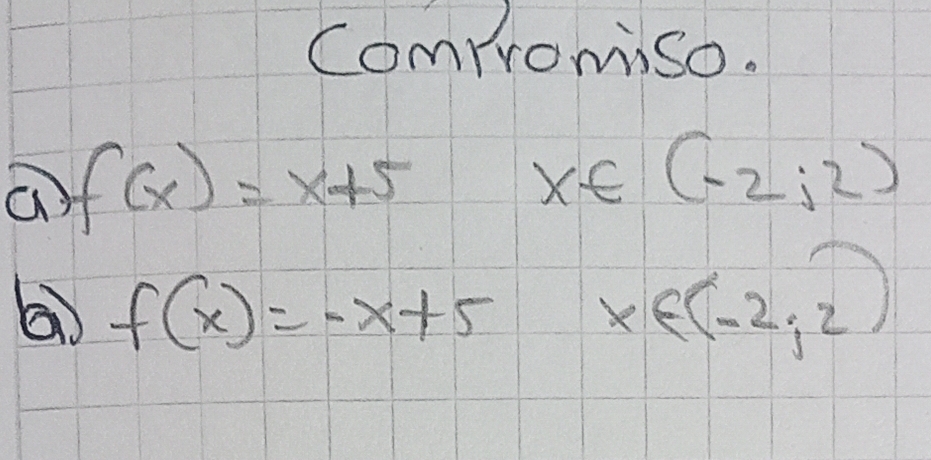 Compromiso.
a) f(x) = x+5 x∈ (-2;2)
b) f(x) = -x+5 x∈(-2;2)